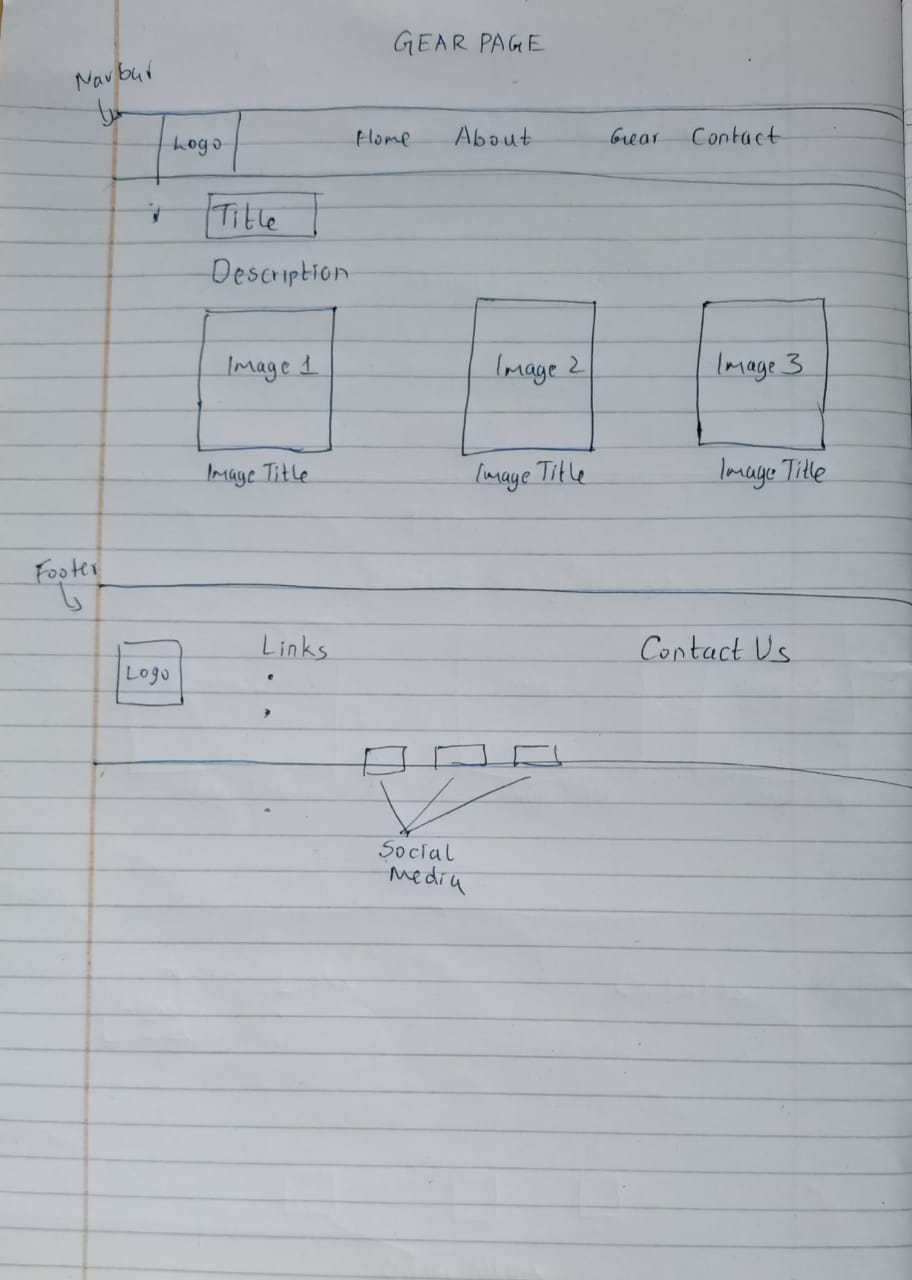 GEAR PAGE
Navbar
Logo Home About Gear Contact
Title
Description
Image 1 Image 2 Image 3
Image Title Image Title Image Title
Footer
Logo Links Contact Us
Social
Media